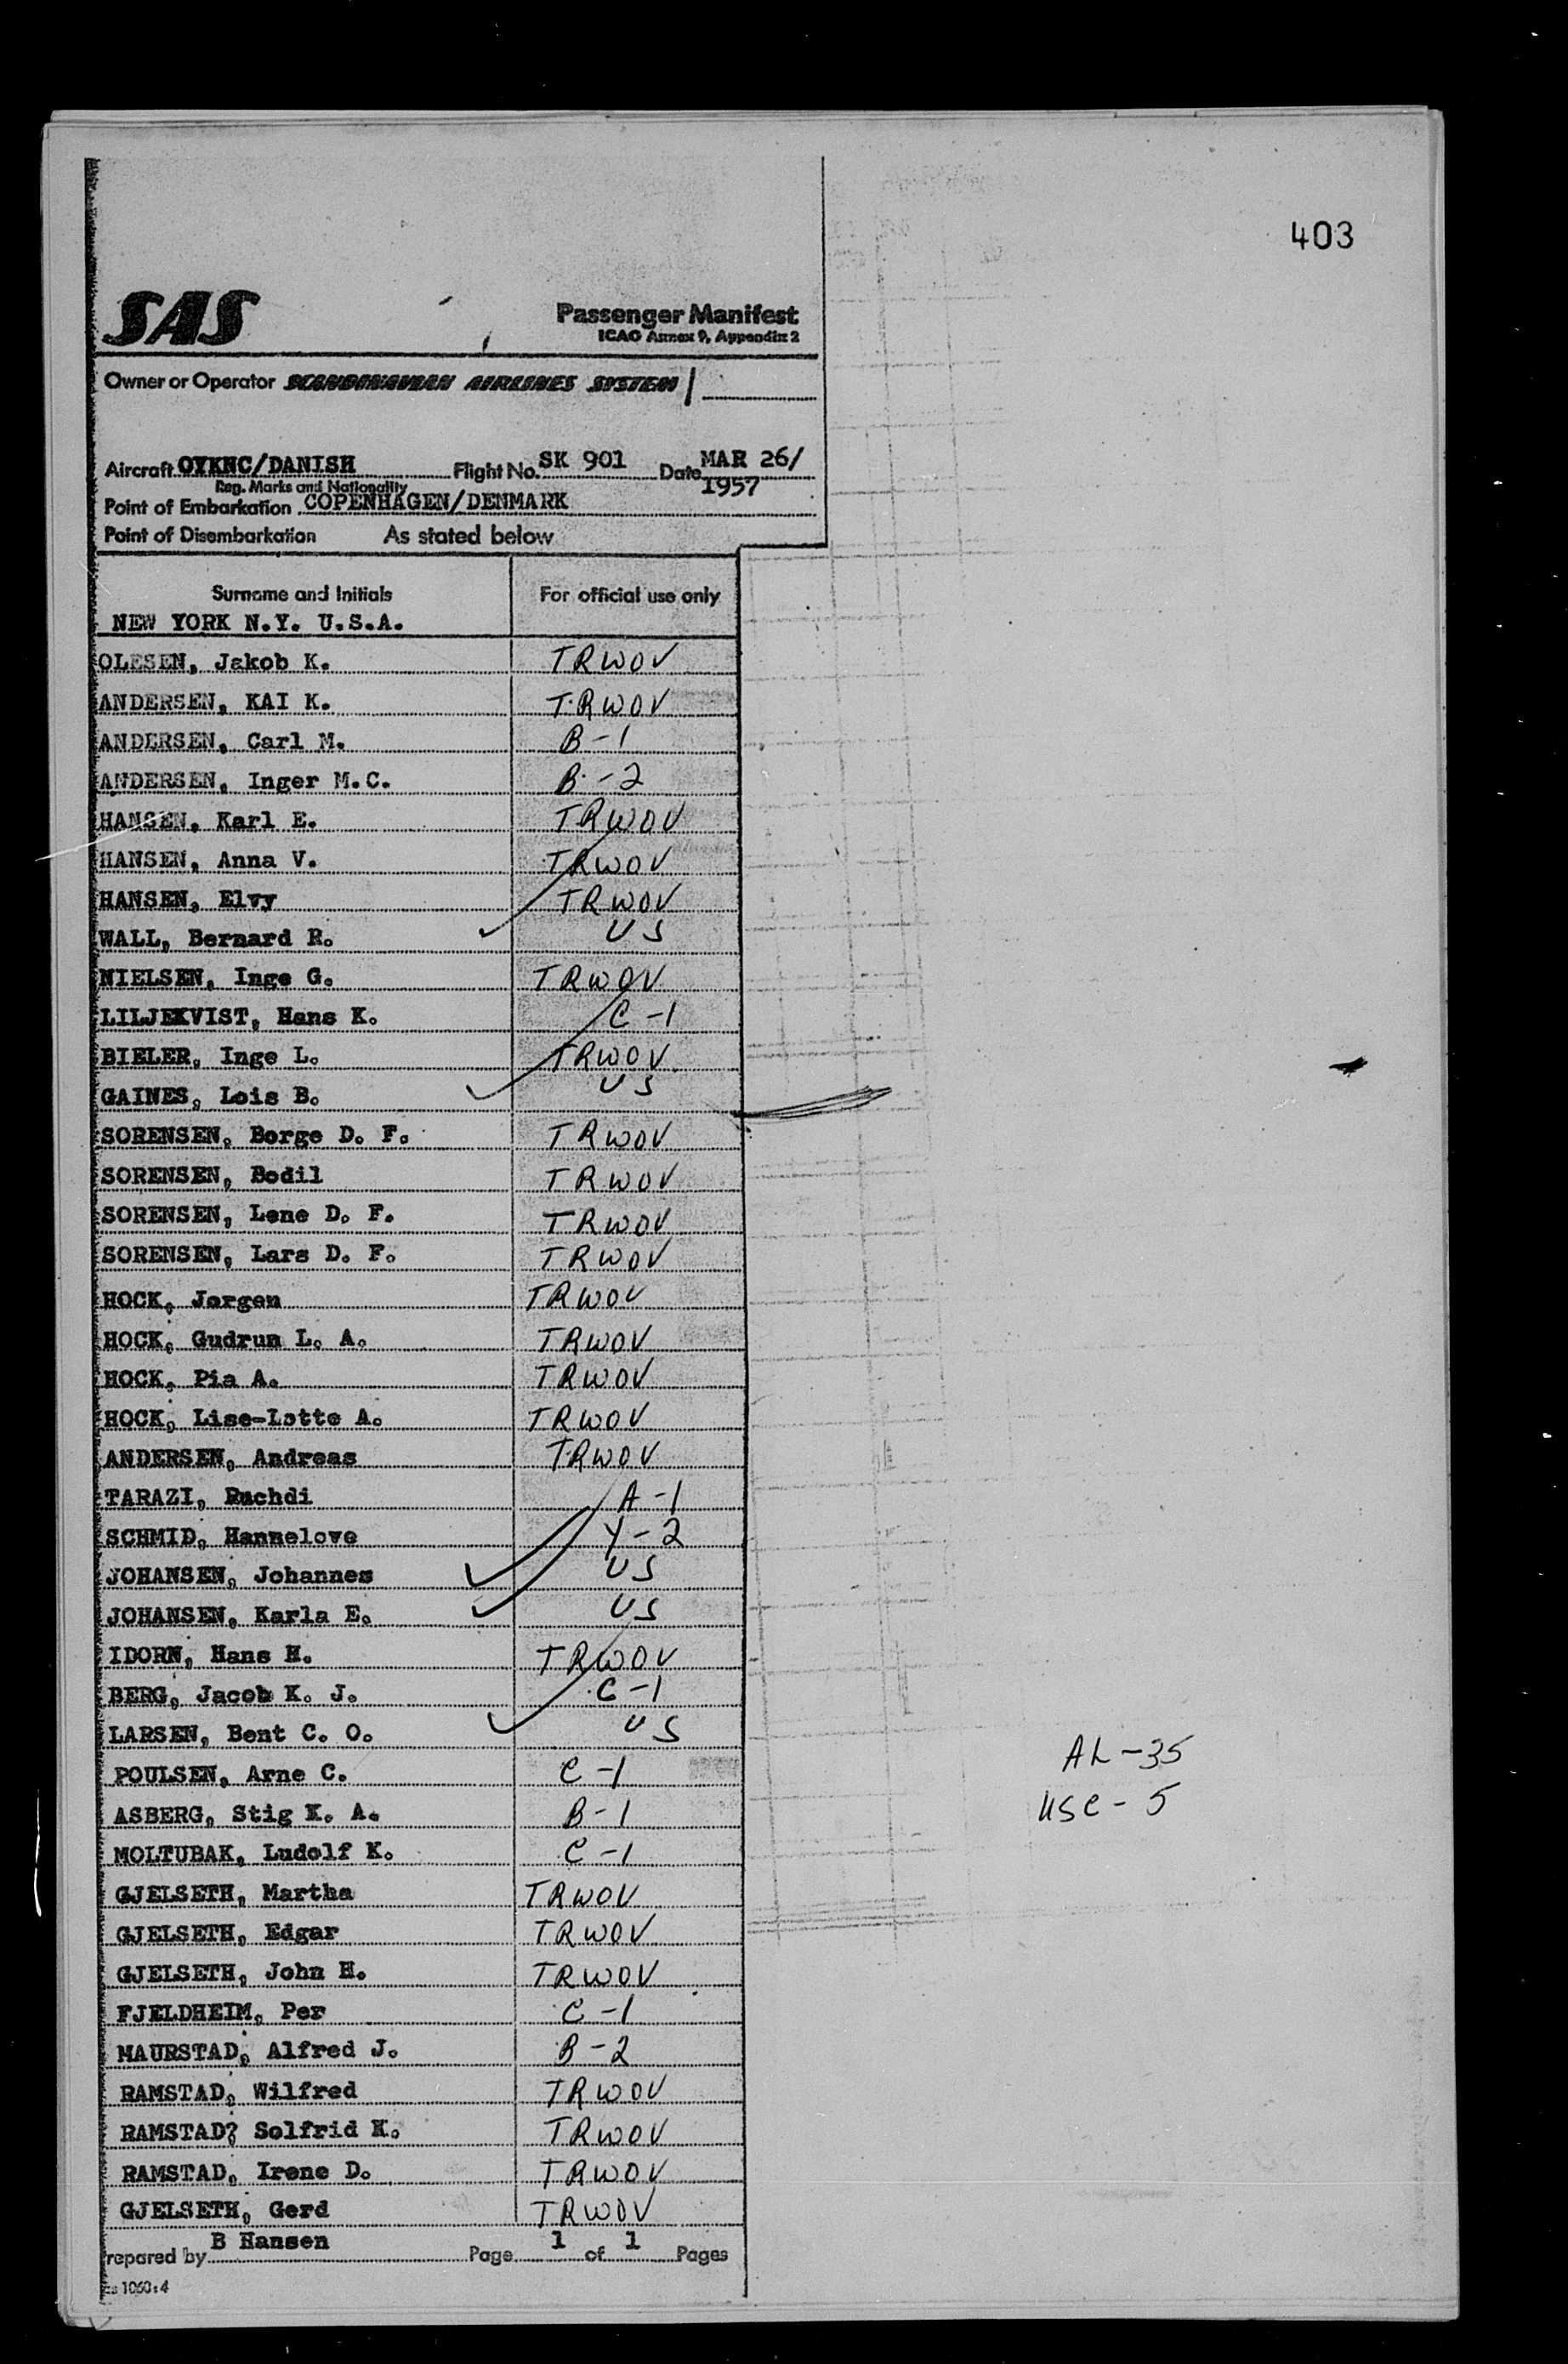 403
SAS
Passenger Manifest
ICAO Annex 9, Appendix 2
Owner or Operator SCANDINAVIAN AIRLINES SYSTEM
Aircraft OYKNC/DANISH Flight No. SK 901 Date MAR 26/
1957
Reg. Marks and Nationality
Point of Embarkation COPENHAGEN/DENMARK
Point of Disembarkation As stated below
Surname and Initials For official use only
NEW YORK N.Y. U.S.A.
OLESEN, Jakob K. TRWOV
ANDERSEN, KAI K. TRWOV
ANDERSEN, Carl M. B-1
ANDERSEN, Inger M.C. B-2
HANSEN, Karl E. TRWOV
HANSEN, Anna V. TRWOV
HANSEN, Elvy TRWOV
WALL, Bernard R. US
NIELSEN, Inge G. TRWOV
LILJEKVIST, Hans K. C-1
BIELER, Inge L. TRWOV
GAINES, Lois B. US
SORENSEN, Borge D. F. TRWOV
SORENSEN, Bodil TRWOV
SORENSEN, Lene D. F. TRWOV
SORENSEN, Lars D. F. TRWOV
HOCK, Jorgen TRWOV
HOCK, Gudrun L. A. TRWOV
HOCK, Pia A. TRWOV
HOCK, Lise-Lotte A. TRWOV
ANDERSEN, Andreas TRWOV
TARAZI, Ruchdi A-1
SCHMID, Hannelove Y-2
JOHANSEN, Johannes US
JOHANSEN, Karla E. US
IDORN, Hans H. TRWOV
BERG, Jacob K. J. C-1
LARSEN, Bent C. O. US
POULSEN, Arne C. C-1
ASBERG, Stig K. A. B-1
MOLTUBAK, Ludolf K. C-1
GJELSETH, Martha TRWOV
GJELSETH, Edgar TRWOV
GJELSETH, John H. TRWOV
FJELDHEIM, Per C-1
MAURSTAD, Alfred J. B-2
RAMSTAD, Wilfred TRWOV
RAMSTAD? Solfrid K. TRWOV
RAMSTAD, Irene D. TRWOV
GJELSETH, Gerd TRWOV
AL-35
USC-5
repared by B Hansen Page 1 of 1 Pages
1060:4